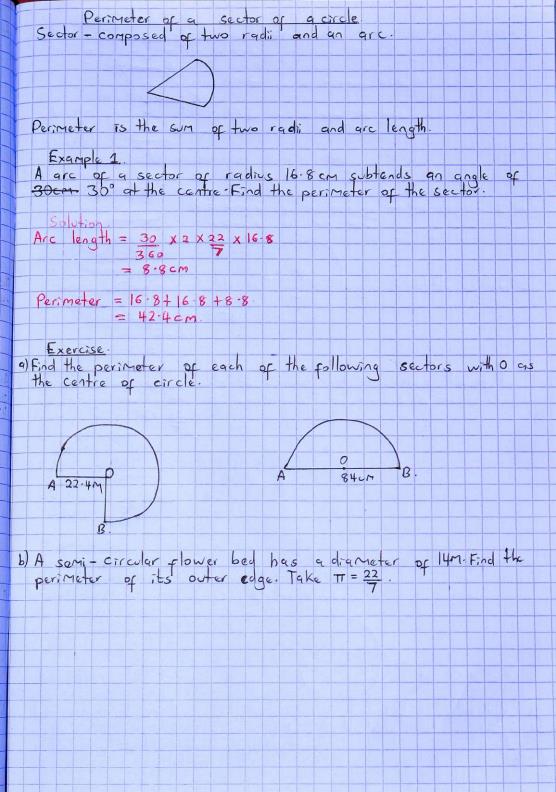 Perimeter of a sector of a circle
Sector - composed of two radii and an arc.
Perimeter is the sum of two radii and arc length.
Example 1.
A arc of a sector of radius 16.8cm subtends an angle of
30cm 30° at the centre. Find the perimeter of the sector.
Solution
Arc length = 30/360 x 2 x 22/7 x 16.8
= 8.8cm
Perimeter = 16.8 + 16.8 + 8.8
= 42.4cm.
Exercise.
a) Find the perimeter of each of the following sectors with O as
the centre of circle.
A 22.4M O
B
A O B.
84cm
b) A semi-circular flower bed has a diameter of 14M. Find the
perimeter of its outer edge. Take π = 22/7.